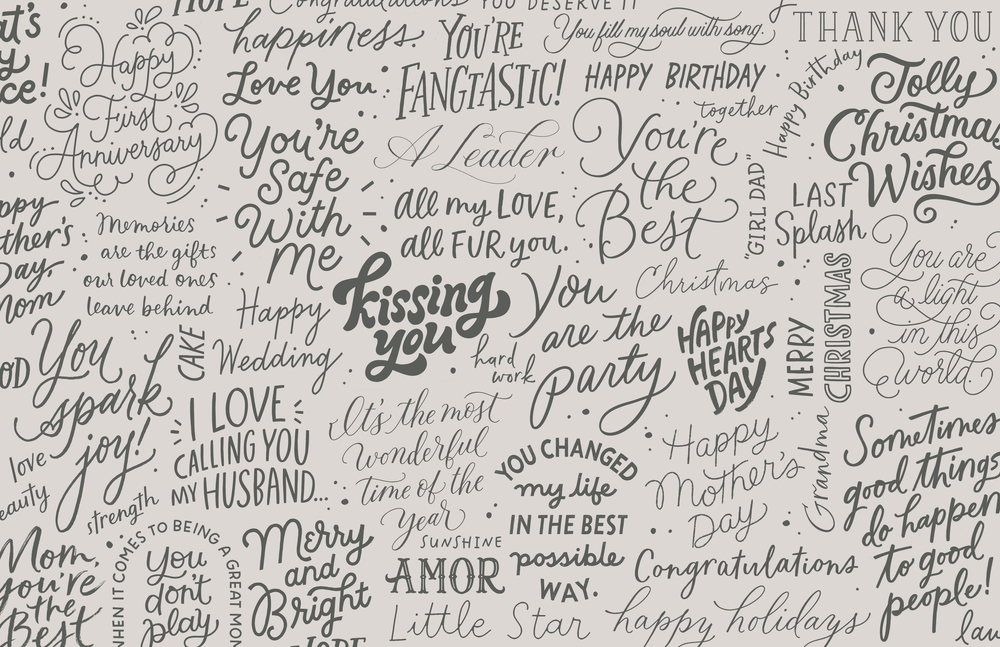 HOPE
Congratulations
YOU DESERVE IT
happiness.
YOU'RE
FANGTASTIC!
You fill my soul with song.
THANK YOU
Happy
First
Anniversary
Love You
HAPPY BIRTHDAY
together
Happy Birthday
Jolly
Christmas
Wishes
You're
Safe
With
Me
A Leader
You're
the
Best
"GIRL DAD"
LAST
Splash
all my LOVE,
all FUR you.
Memories
are the gifts
our loved ones
leave behind
Day,
Mom
Happy
Wedding
CAKE
kissing
you
hard
work
You
are the
party
Christmas
HAPPY
HEARTS
DAY
MERRY
CHRISTMAS
You are
a light
in this
world.
You
spark
joy!
love
strength
I LOVE
CALLING YOU
MY HUSBAND...
It's the most
wonderful
time of the
Year
SUNSHINE
YOU CHANGED
my life
IN THE BEST
possible
WAY.
Happy
Mother's
Day
Grandma
Sometimes
good things
do happen
to good
people!
Mom,
you're
the
Best
WHEN IT COMES TO BEING A GREAT MOM
You
don't
play
Merry
and
Bright
AMOR
Little Star
Congratulations
happy holidays